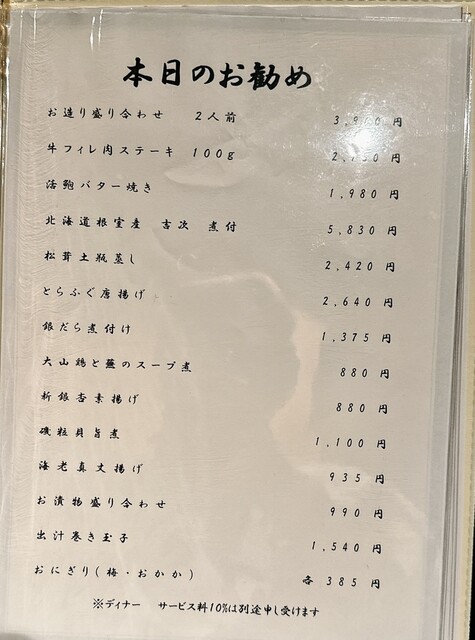 本日のお勧め
お造り盛り合わせ 2人前 円
牛フィレ肉ステーキ 100g 円
活鮑バター焼き 1,980 円
北海道根室産 吉次 煮付 5,830 円
松茸土瓶蒸し 2,420 円
とらふぐ唐揚げ 2,640 円
銀だら煮付け 1,375 円
大山鶏と蕪のスープ煮 880 円
新銀杏素揚げ 880 円
磯粒貝旨煮 1,100 円
海老真丈揚げ 935 円
お漬物盛り合わせ 990 円
出汁巻き玉子 1,540 円
おにぎり(梅・おかか) 各 385 円
※ディナー サービス料10%は別途申し受けます